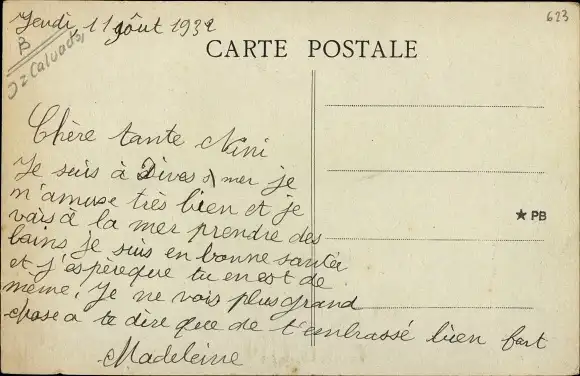 Jeudi, 11 août 1932
B
Calvados
623
CARTE POSTALE
Chère tante Nini
Je suis à Dives s/ mer je
m'amuse très bien et je
vais à la mer prendre des
bains je suis en bonne santée
et j'espèreque tu en est de
même. Je ne vois plus grand
chose a te dire que de t'embrassé bien fort
Madeleine
★ PB